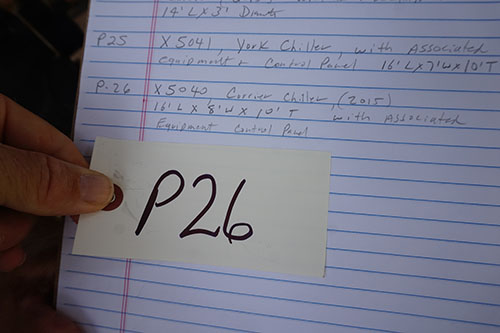 14' L X 3' Diameter
P25 X5041, York Chiller, with Associated
equipment + Control Panel 16'L X 7'W X 10'T
P-26 X5040 Carrier Chiller, (2015)
16'L X 8'W X 10'T with Associated
Equipment Control Panel
P26